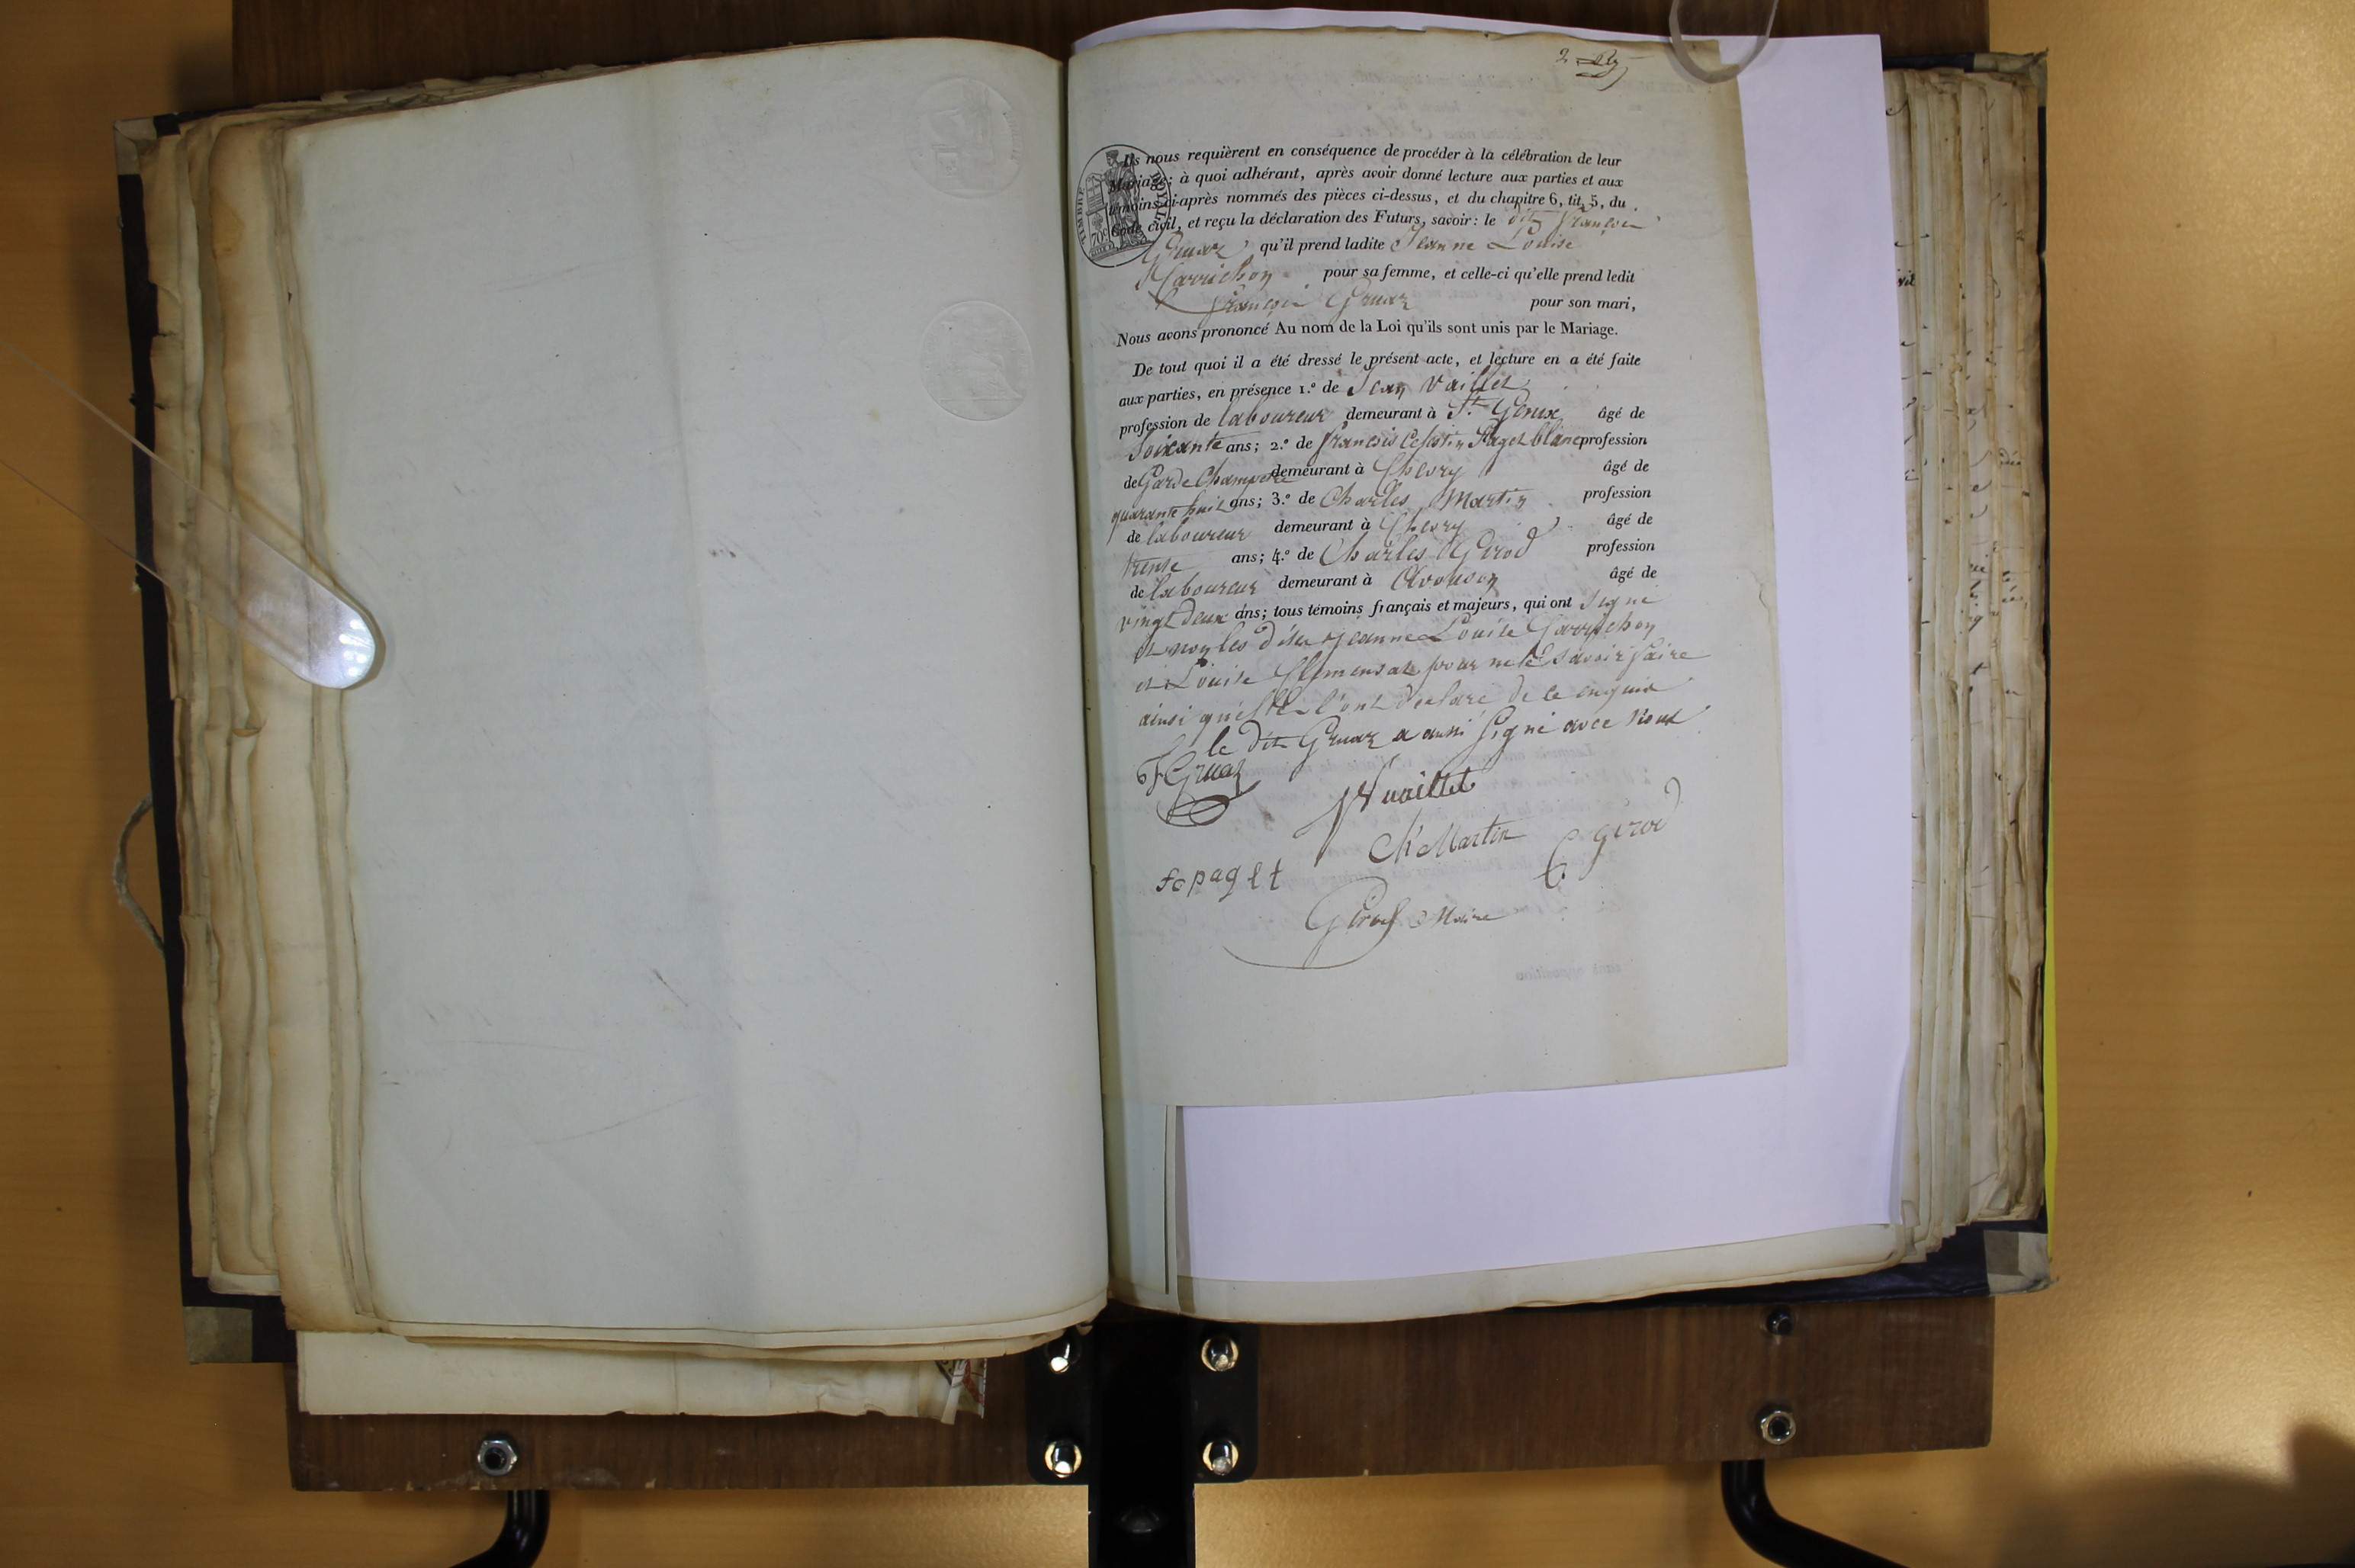 2
Ils nous requièrent en conséquence de procéder à la célébration de leur
Mariage; à quoi adhérant, après avoir donné lecture aux parties et aux
témoins ci-après nommés des pièces ci-dessus, et du chapitre 6, tit. 5, du
Code civil, et reçu la déclaration des Futurs, savoir: le dit françois
Gruaz qu'il prend ladite Jeanne Louise
pour sa femme, et celle-ci qu'elle prend ledit
françois Gruaz pour son mari,
Nous avons prononcé Au nom de la Loi qu'ils sont unis par le Mariage.
De tout quoi il a été dressé le présent acte, et lecture en a été faite
aux parties, en présence 1.º de Jean Vaillet
profession de laboureur demeurant à St. Genix âgé de
Soixante ans; 2.º de françois Paget blanc profession
de Garde Champetre demeurant à Chevry âgé de
quarante huit ans; 3.º de Charles Martin profession
de laboureur demeurant à Chevry âgé de
trente ans; 4.º de Charles Girod profession
de laboureur demeurant à âgé de
vingt deux ans; tous témoins français et majeurs, qui ont signé
et non les dites Jeanne Louise
et Louise pour ne le savoir faire
ainsi qu'elles l'ont déclaré de ce enquis
le dit Gruaz a aussi signé avec nous
TIMBRE ROYAL
70c
F Gruaz
vaillet
Ch Martin
C girod
fc paget
Girod Maire